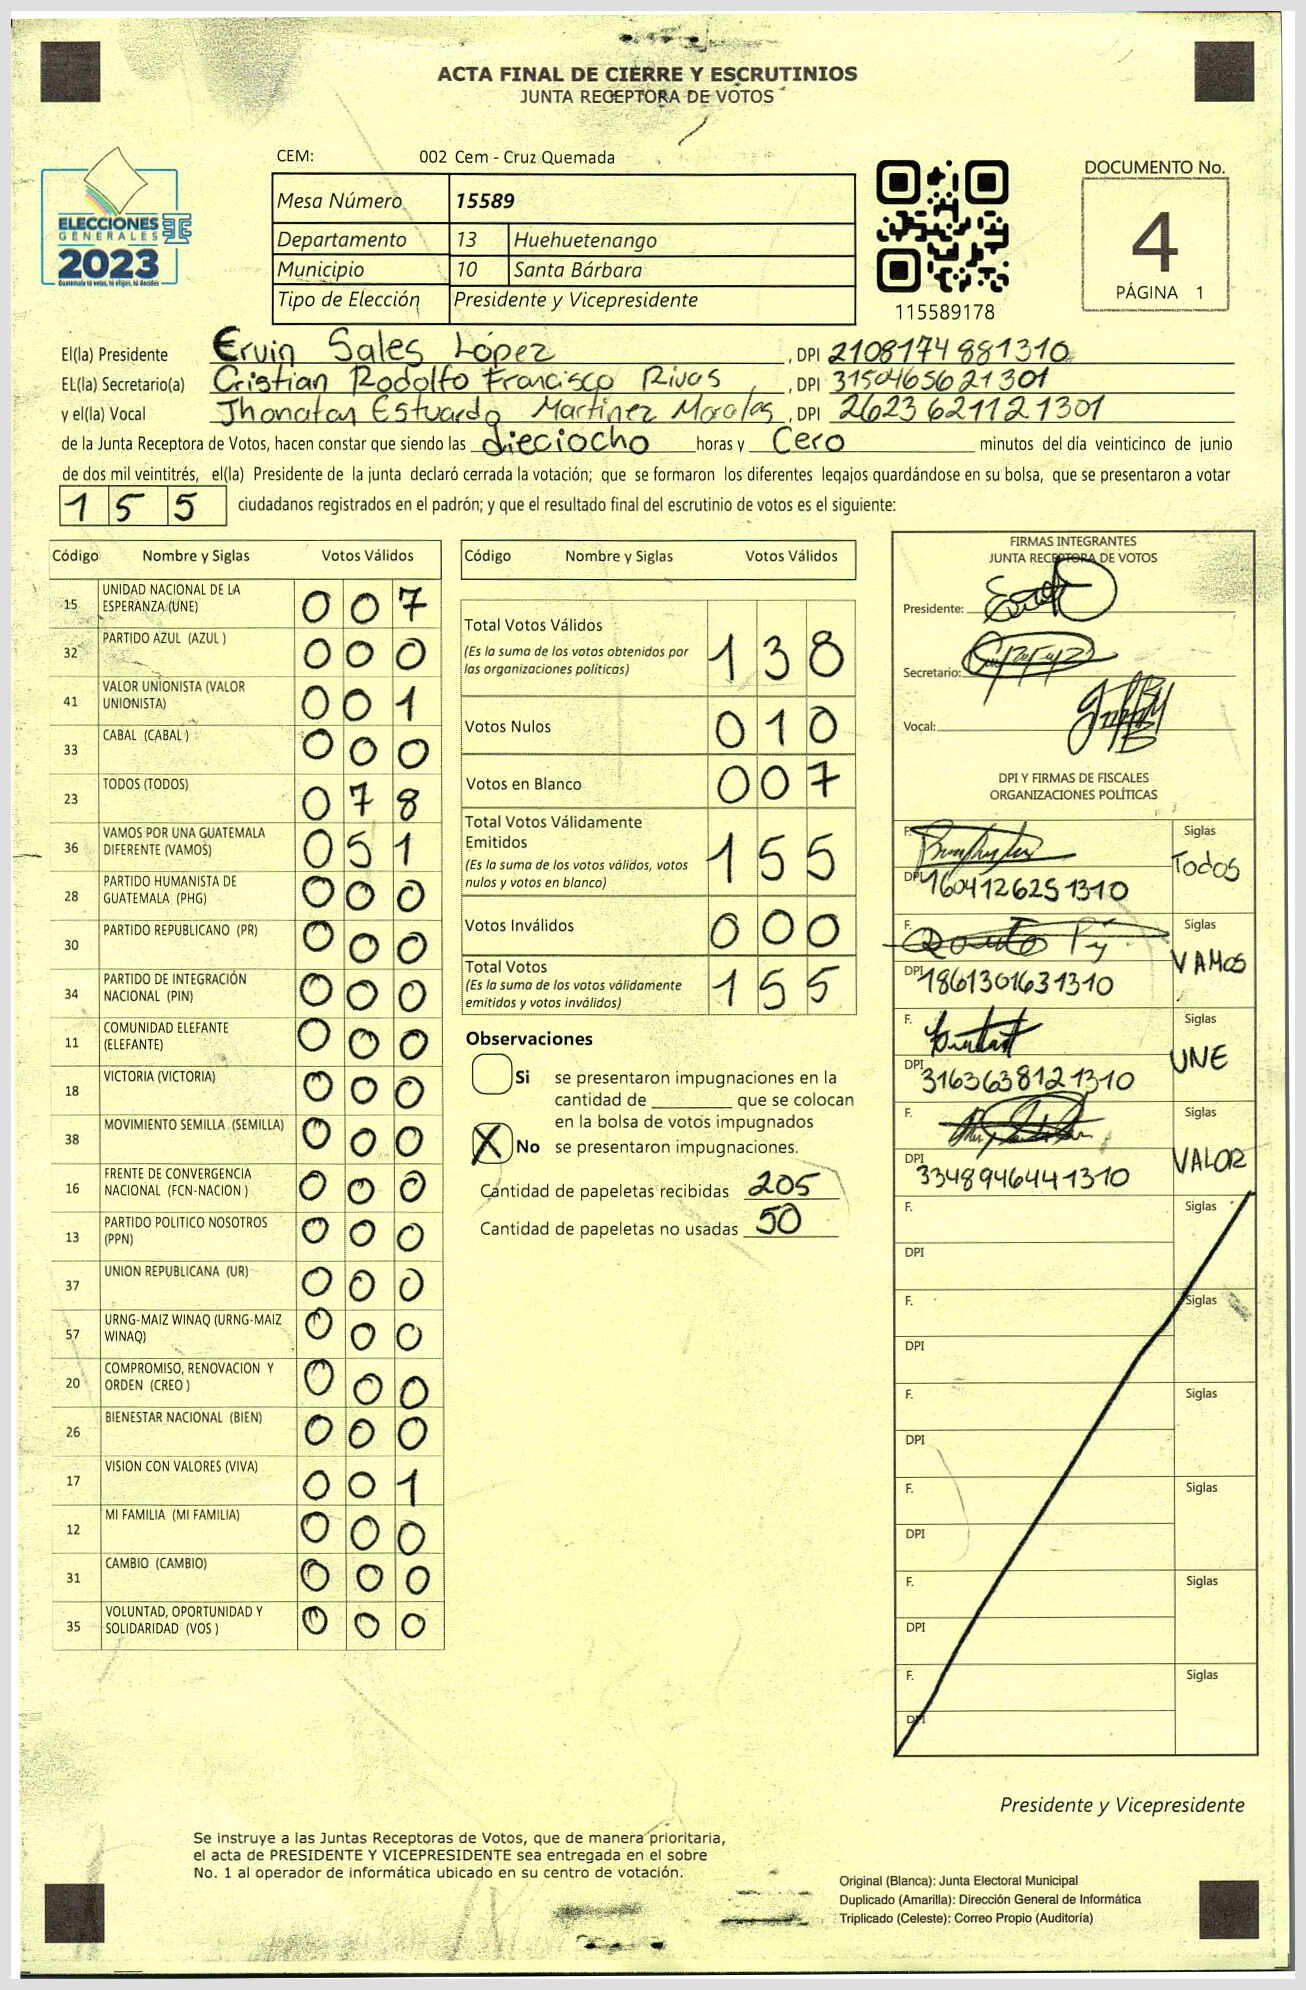 ACTA FINAL DE CIERRE Y ESCRUTINIOS
JUNTA RECEPTORA DE VOTOS
CEM: 002 Cem - Cruz Quemada
Mesa Número 15589
Departamento 13 Huehuetenango
Municipio 10 Santa Bárbara
Tipo de Elección Presidente y Vicepresidente
ELECCIONES
GENERALES
2023
Guatemala tú votas, tú eliges, tú decides
115589178
DOCUMENTO No.
4
PÁGINA 1
El(la) Presidente Ervin Sales López, DPI 2108174881310
EL(la) Secretario(a) Cristian Rodolfo Francisco Rivas, DPI 3150465621301
y el(la) Vocal Jhonatan Estuardo Martinez Morales, DPI 2623621121301
de la Junta Receptora de Votos, hacen constar que siendo las dieciocho horas y Cero minutos del día veinticinco de junio
de dos mil veintitrés, el(la) Presidente de la junta declaró cerrada la votación; que se formaron los diferentes legajos guardándose en su bolsa, que se presentaron a votar
155 ciudadanos registrados en el padrón; y que el resultado final del escrutinio de votos es el siguiente:
Código Nombre y Siglas Votos Válidos
15 UNIDAD NACIONAL DE LA ESPERANZA (UNE) 007
32 PARTIDO AZUL (AZUL ) 000
41 VALOR UNIONISTA (VALOR UNIONISTA) 001
33 CABAL (CABAL ) 000
23 TODOS (TODOS) 078
36 VAMOS POR UNA GUATEMALA DIFERENTE (VAMOS) 051
28 PARTIDO HUMANISTA DE GUATEMALA (PHG) 000
30 PARTIDO REPUBLICANO (PR) 000
34 PARTIDO DE INTEGRACIÓN NACIONAL (PIN) 000
11 COMUNIDAD ELEFANTE (ELEFANTE) 000
18 VICTORIA (VICTORIA) 000
38 MOVIMIENTO SEMILLA (SEMILLA) 000
16 FRENTE DE CONVERGENCIA NACIONAL (FCN-NACION ) 000
13 PARTIDO POLITICO NOSOTROS (PPN) 000
37 UNION REPUBLICANA (UR) 000
57 URNG-MAIZ WINAQ (URNG-MAIZ WINAQ) 000
20 COMPROMISO, RENOVACION Y ORDEN (CREO ) 000
26 BIENESTAR NACIONAL (BIEN) 000
17 VISION CON VALORES (VIVA) 001
12 MI FAMILIA (MI FAMILIA) 000
31 CAMBIO (CAMBIO) 000
35 VOLUNTAD, OPORTUNIDAD Y SOLIDARIDAD (VOS ) 000
Código Nombre y Siglas Votos Válidos
Total Votos Válidos 138
(Es la suma de los votos obtenidos por
las organizaciones políticas)
Votos Nulos 010
Votos en Blanco 007
Total Votos Válidamente
Emitidos 155
(Es la suma de los votos válidos, votos
nulos y votos en blanco)
Votos Inválidos 000
Total Votos 155
(Es la suma de los votos válidamente
emitidos y votos inválidos)
Observaciones
Si se presentaron impugnaciones en la
cantidad de ________ que se colocan
en la bolsa de votos impugnados
X No se presentaron impugnaciones.
Cantidad de papeletas recibidas 205
Cantidad de papeletas no usadas 50
FIRMAS INTEGRANTES
JUNTA RECEPTORA DE VOTOS
Presidente:
Secretario:
Vocal:
DPI Y FIRMAS DE FISCALES
ORGANIZACIONES POLÍTICAS
F. Siglas
DPI 1604126251310 TODOS
F. Siglas
DPI 1861301631310 VAMOS
F. Siglas
DPI 3163638121310 UNE
F. Siglas
DPI 3348946441310 VALOR
F. Siglas
DPI
F. Siglas
DPI
F. Siglas
DPI
F. Siglas
DPI
F. Siglas
DPI
F. Siglas
DPI
Presidente y Vicepresidente
Se instruye a las Juntas Receptoras de Votos, que de manera prioritaria,
el acta de PRESIDENTE Y VICEPRESIDENTE sea entregada en el sobre
No. 1 al operador de informática ubicado en su centro de votación.
Original (Blanca): Junta Electoral Municipal
Duplicado (Amarilla): Dirección General de Informática
Triplicado (Celeste): Correo Propio (Auditoría)